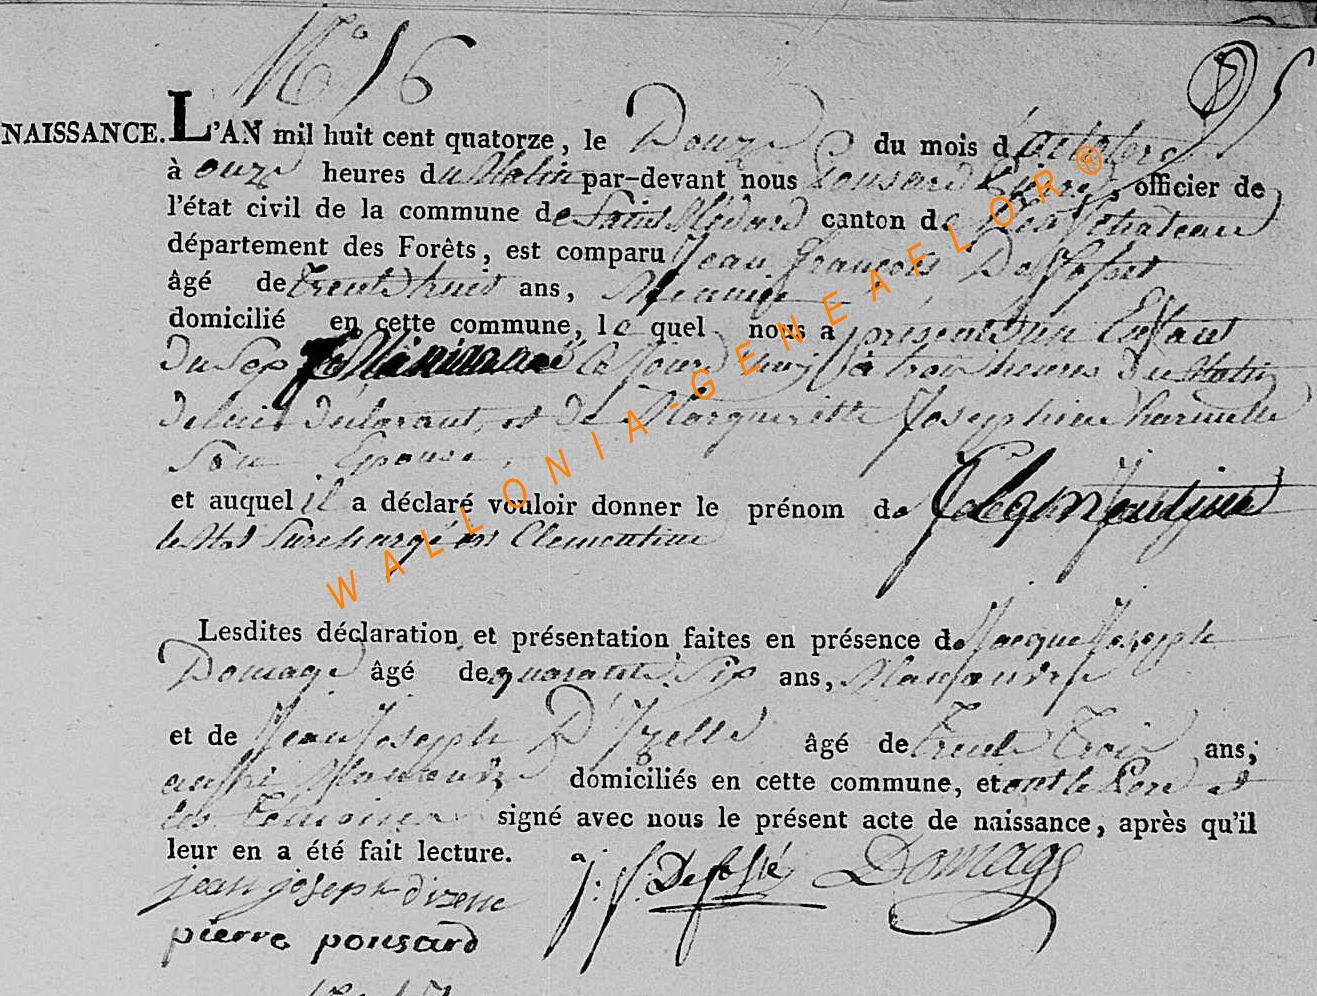 N° 16
NAISSANCE. L'AN mil huit cent quatorze, le Douze du mois d'octobre
à onze heures du Matin par-devant nous Pousard Pierre, officier de
l'état civil de la commune de Saint Médard canton de Neufchateau
département des Forêts, est comparu Jean François Defossé
âgé de trente huit ans, domicilié en cette commune, le quel nous a présenté un Enfant
du Sexe féminin né Ce jourd'huy à trois heures du Matin
de lui déclarant, et de Margueritte Josephine
Son Epouse,
et auquel il a déclaré vouloir donner le prénom de Clementine
le Mot Surchargé est Clementine
Lesdites déclaration et présentation faites en présence de Jacque Joseph
Domage âgé de quarante Six ans, Manœuvre
et de Jean Joseph D'Izelle âgé de trente Trois ans,
aussi Manœuvre domiciliés en cette commune, et ont le Pere et
les Témoins signé avec nous le présent acte de naissance, après qu'il
leur en a été fait lecture.
jean joseph dizelle j: f: Defossé Domage
pierre pousard
WALLONIA-GENEAFLOR®